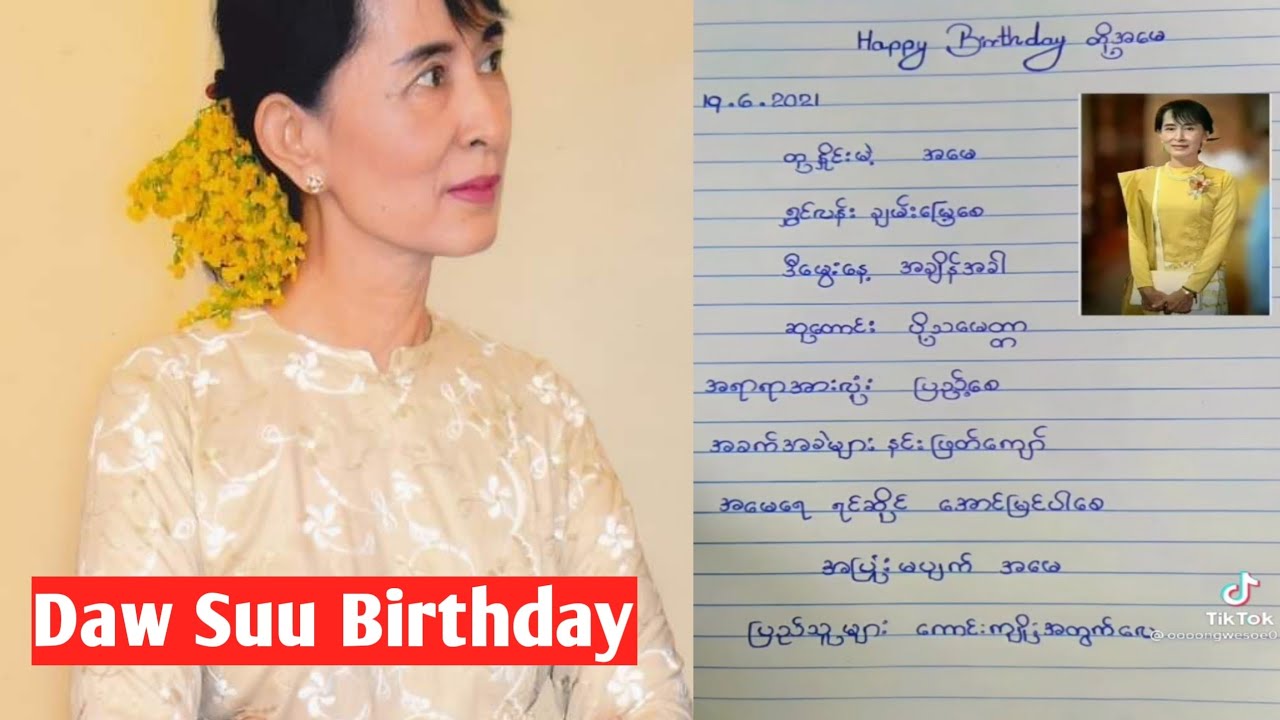 Happy Birthday တို့အမေ
19.6.2021
တုနှိုင်းမဲ့ အမေ
ရွှင်လန်း ချမ်းမြေ့စေ
ဒီမွေးနေ့ အချိန်အခါ
ဆုတောင်း ပို့သမေတ္တာ
အရာရာအားလုံး ပြည့်စေ
အခက်အခဲများ နင်းဖြတ်ကျော်
အမေရေ ရင်ဆိုင် အောင်မြင်ပါစေ
အပြုံးမပျက် အမေ
ပြည်သူများ ကောင်းကျိုးအတွက်လေး
Daw Suu Birthday
TikTok